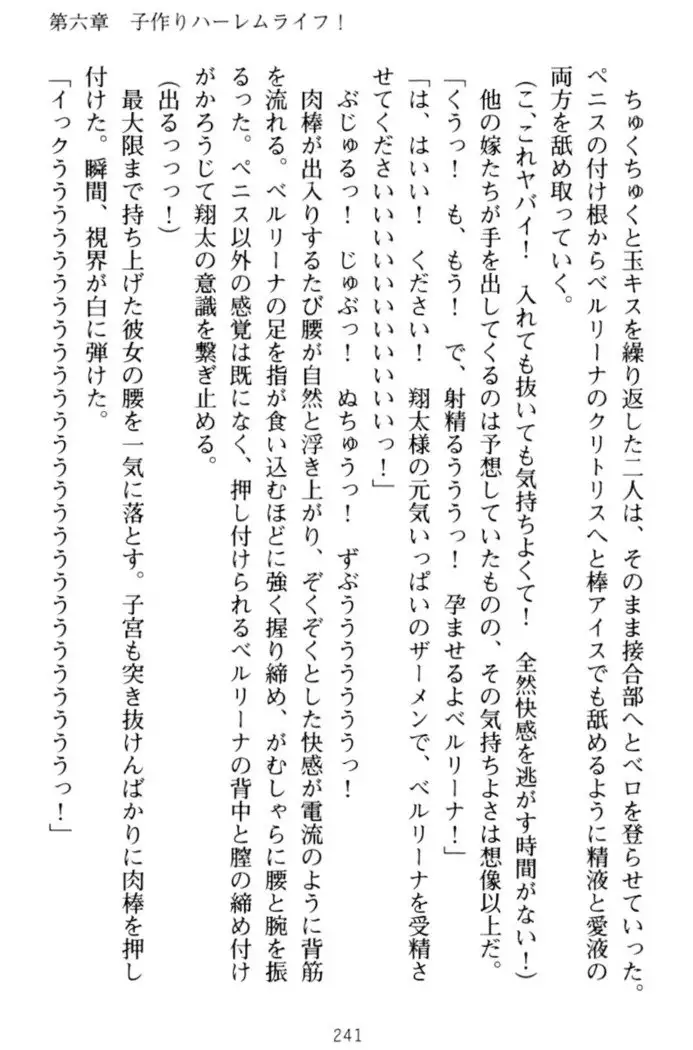 第六章　子作りハーレムライフ！
　ちゅくちゅくと玉キスを繰り返した二人は、そのまま接合部へとベロを登らせていった。
ペニスの付け根からベルリーナのクリトリスへと棒アイスでも舐めるように精液と愛液の
両方を舐め取っていく。
（こ、これヤバイ！　入れても抜いても気持ちよくて！　全然快感を逃がす時間がない！）
　他の嫁たちが手を出してくるのは予想していたものの、その気持ちよさは想像以上だ。
「くうっ！　も、もう！　で、射精るうううっ！　孕ませるよベルリーナ！」
「は、はいい！　ください！　翔太様の元気いっぱいのザーメンで、ベルリーナを受精さ
せてくださいいいいいいいいいいいっ！」
　ぶじゅるっ！　じゅぶっ！　ぬちゅうっ！　ずぶうううううううっ！
　肉棒が出入りするたび腰が自然と浮き上がり、ぞくぞくとした快感が電流のように背筋
を流れる。ベルリーナの足を指が食い込むほどに強く握り締め、がむしゃらに腰と腕を振
るった。ペニス以外の感覚は既になく、押し付けられるベルリーナの背中と膣の締め付け
がかろうじて翔太の意識を繋ぎ止める。
（出るっっっ！）
　最大限まで持ち上げた彼女の腰を一気に落とす。子宮も突き抜けんばかりに肉棒を押し
付けた。瞬間、視界が白に弾けた。
「イックうううううううううううううううううううううううううううううっ！」
241